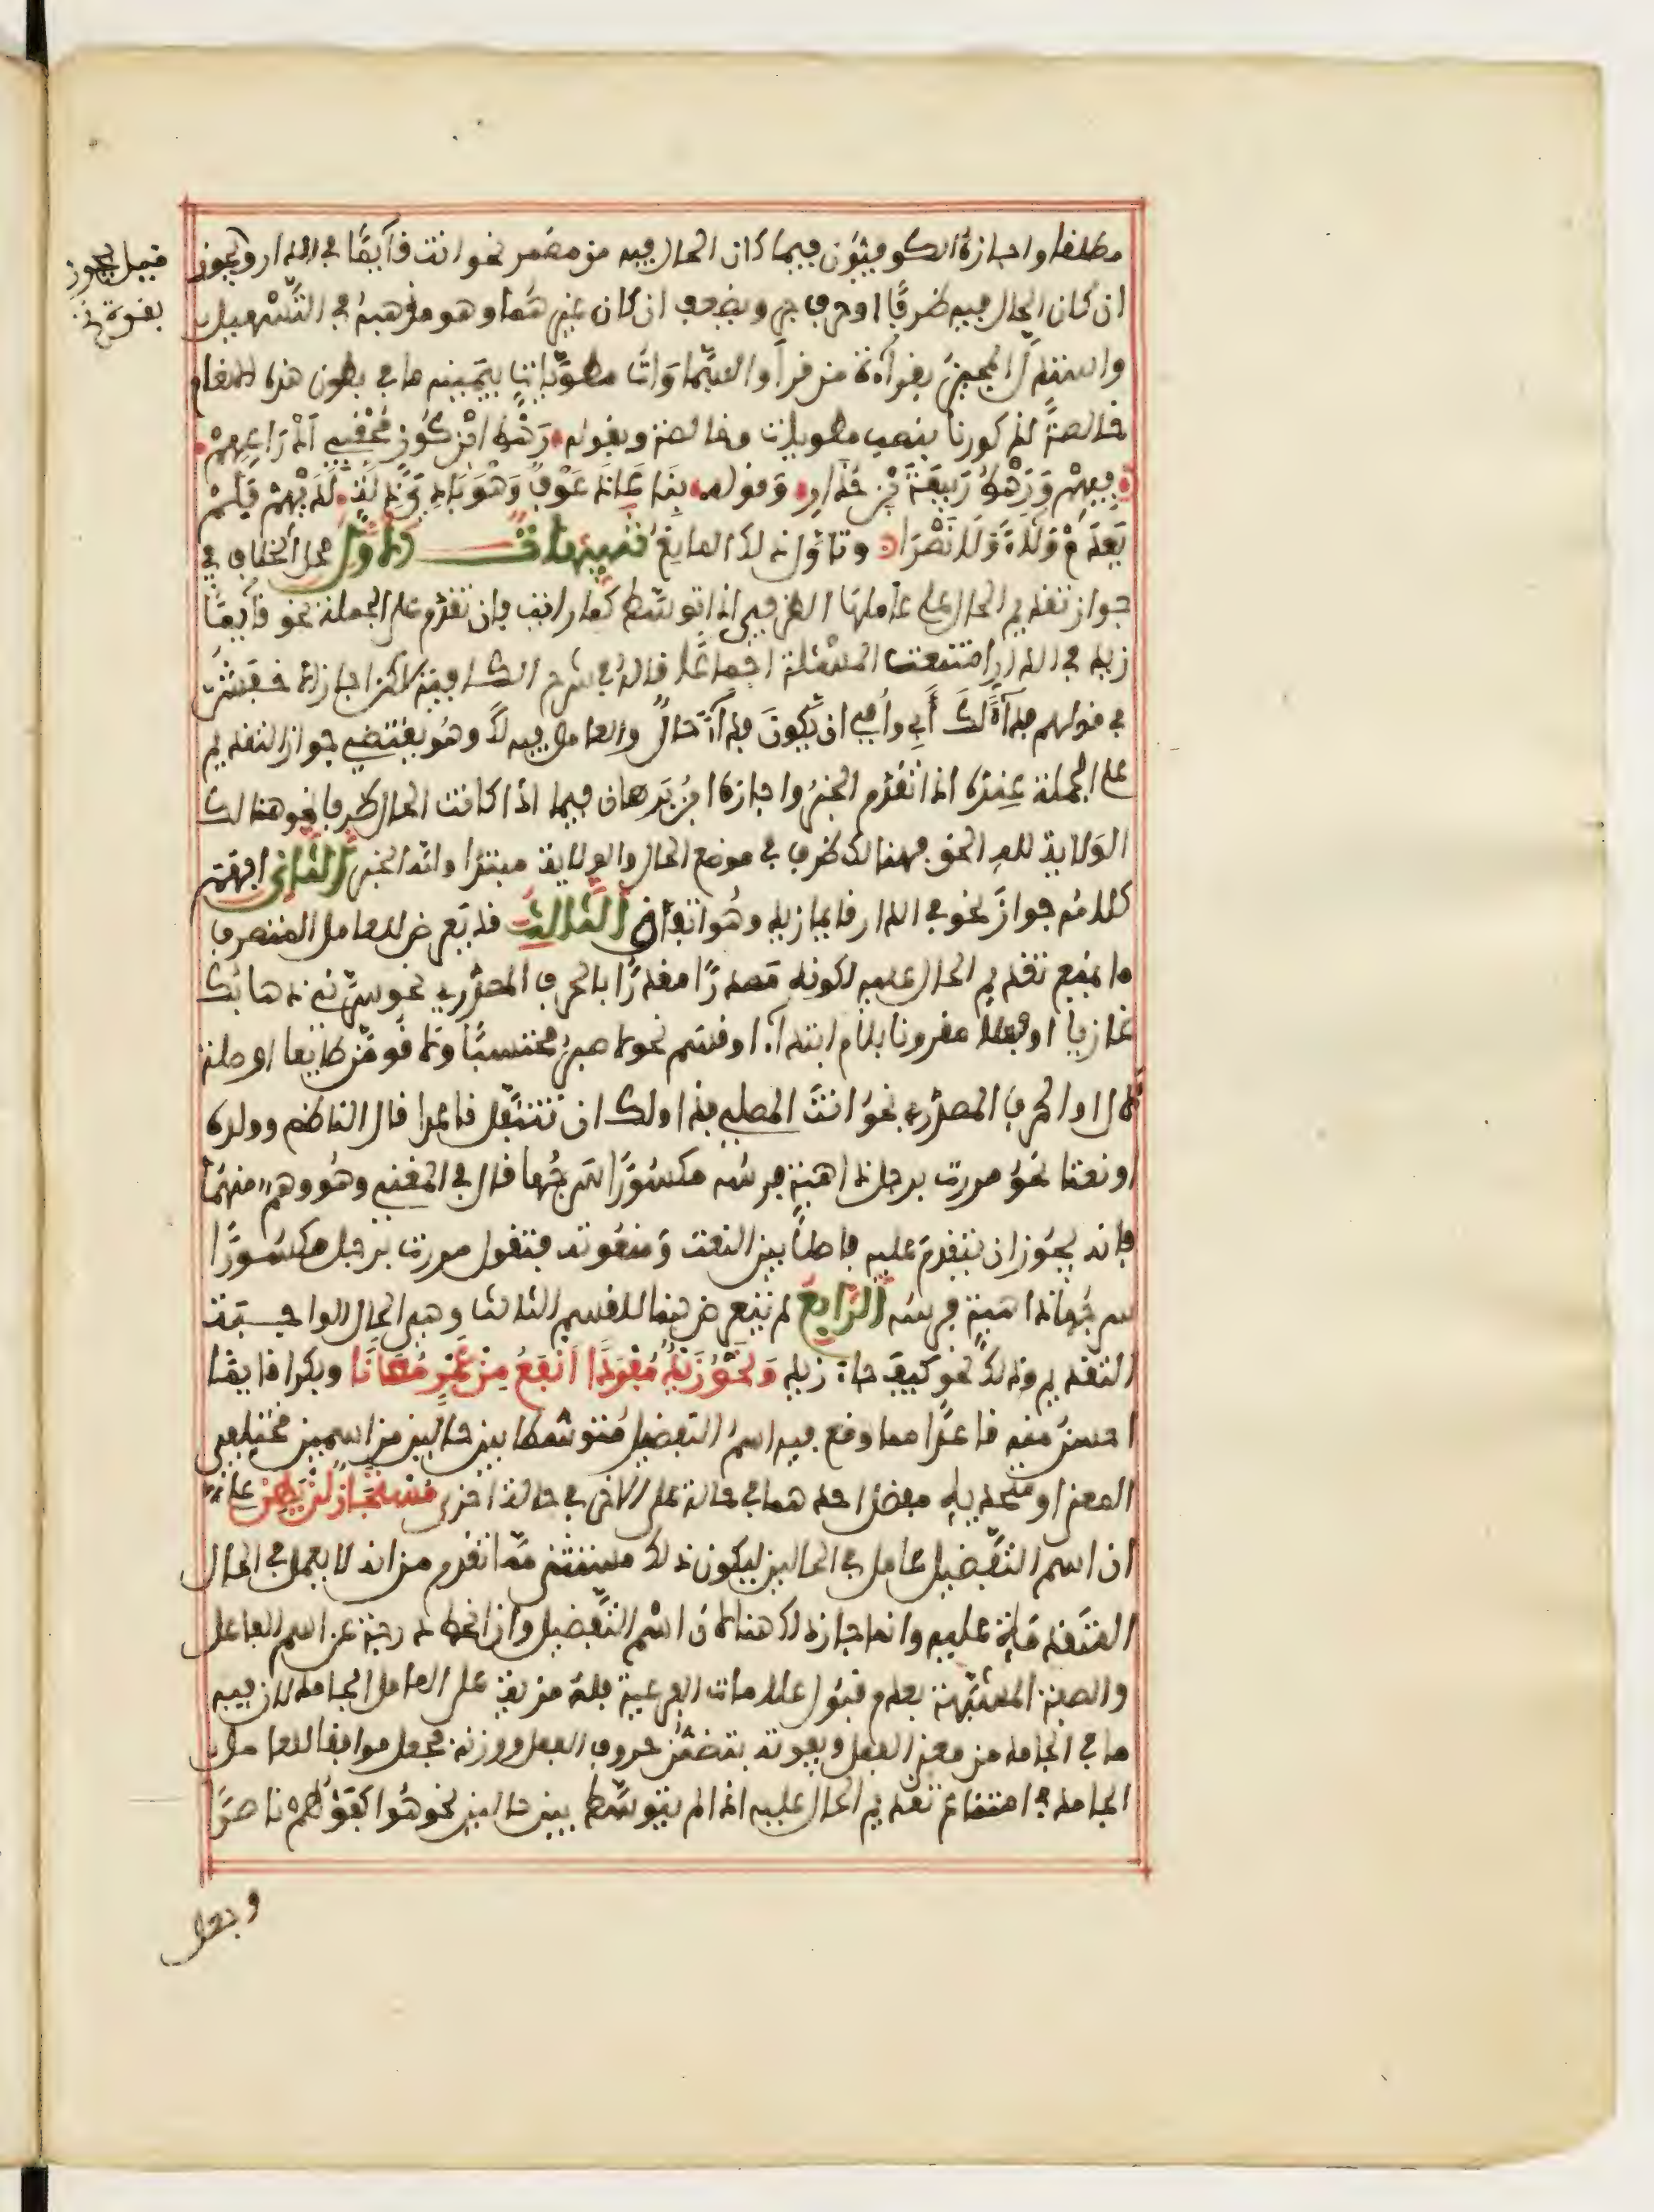 مطلقا واجازه الكوفيون فيما كان الحال فيه من مضمر نحو انت قآيمًا في الدار ويجوز
قيل يجوز
بقوة
ان كان الحال فيه ظرفًا او حرف جر ويضعف ان كان غيرهما وهو مذهبه في التسهيل
واستدلّ المجيز بقرآءة من قرأ والسموات مطويات بيمينه ما في بطون هذه الانعام
خالصةً لذكورنا بنصب مطويات وخالصة وبقوله رَهْطُ ابْن كُوز مُحْقِبِي أَدْرَاعِهِمْ
فيهِمْ وَرَهْطُ رَبِيعَةَ بْنِ حُذَارِ وقوله بِنَا عَاذَ عَوْفٌ وَهْوَ بَادِيَ ذِلَّةٍ لَدَيْهِمْ فَلَمْ
يَعْدَمْ وَلَاءً وَلَا نَصْرَا وتاول ذلك المانع تنبيهات الاول محل الخلاف في
جواز تقديم الحال على عاملها الظرفي اذا توسّط كما رايت فان تقدّم على الجملة نحو قآيمًا
زيد في الدار امتنعت المسئلة اجماعًا قاله في شرح الكافية لاكن اجاز الاخفش
في قولهم فدآءً لك أبي وأمي ان يكون فدآءً حال والعامل فيه لك وهو يقتضي جواز التقديم
على الجملة عنده اذا تقدم الخبر واجازه ابن برهان فيما اذا كانت الحال ظرفا نحو هنالك
الولاية لله الحق فهنالك ظرف في موضع الحال والولاية مبتدا ولله الخبر الثاني افهم
كلامه جوازَ نحو في الدار قايما زيد وهو اتفاق الثالث قد يعرض للعامل المتصرف
ما يمنع تقديم الحال عليه لكونه مصدرًا مقدرًا بالحرف المصدري نحو سرّني ذهابك
غازيا او فعلا مقرونا بلام ابتدآء او قسم نحو لاصبر محتسبًا ولاقومن طايعا او صلة
لال او الحرف المصدري نحو انت المصلي فذا ولك ان تتنقل قاعدا قال الناظم وولده
او نعتا نحو مررت برجل ذاهبة فرسه مكسورًا سرجُها قال في المغني وهو وهم منهما
فانه يجوز ان يتقدم عليه فاصلاً بين النعت ومنعوته فتقول مررت برجل مكسورًا
سرجُها ذاهبة فرسه الرابع لم يتعرض هنا للقسم الثالث وهي الحال الواجبة
التقديم وذلك نحو كيف جاء زيد وَنَحْوُ زَيْدٌ مُفْرَدًا أَنْفَعُ مِنْ عَمْرٍو مُعَانًا وبكر قايمًا
احسن منه قاعدًا مما وقع فيه اسم التفضيل متوسّطا بين حالين من اسمين مختلفي
المعنى او متحديه مفضل احدهما في حالة على الاخر في حالة اخرى مُسْتَجَازٌ لَنْ يَهِنْ على
ان اسم التفضيل عامل في الحالين ليكون ذلك مستثنى مما تقدم من انه لا يعمل في الحال
المتقدمة عليه وانما جاز ذلك هنا لان اسم التفضيل وان انحط درجة عن اسم الفاعل
والصفة المشبهة بعدم قبول علامات الفرعية فله مزية على العامل الجامد لان فيه
ما في الجامد من معنى الفعل ويفوته بتضمن حروف الفعل ووزنه فجعل موافقا للعامل
الجامد في امتناع تقديم الحال عليه اذا لم يتوسّط بين حالين نحو هو اكفؤهم ناصرًا
وجعل